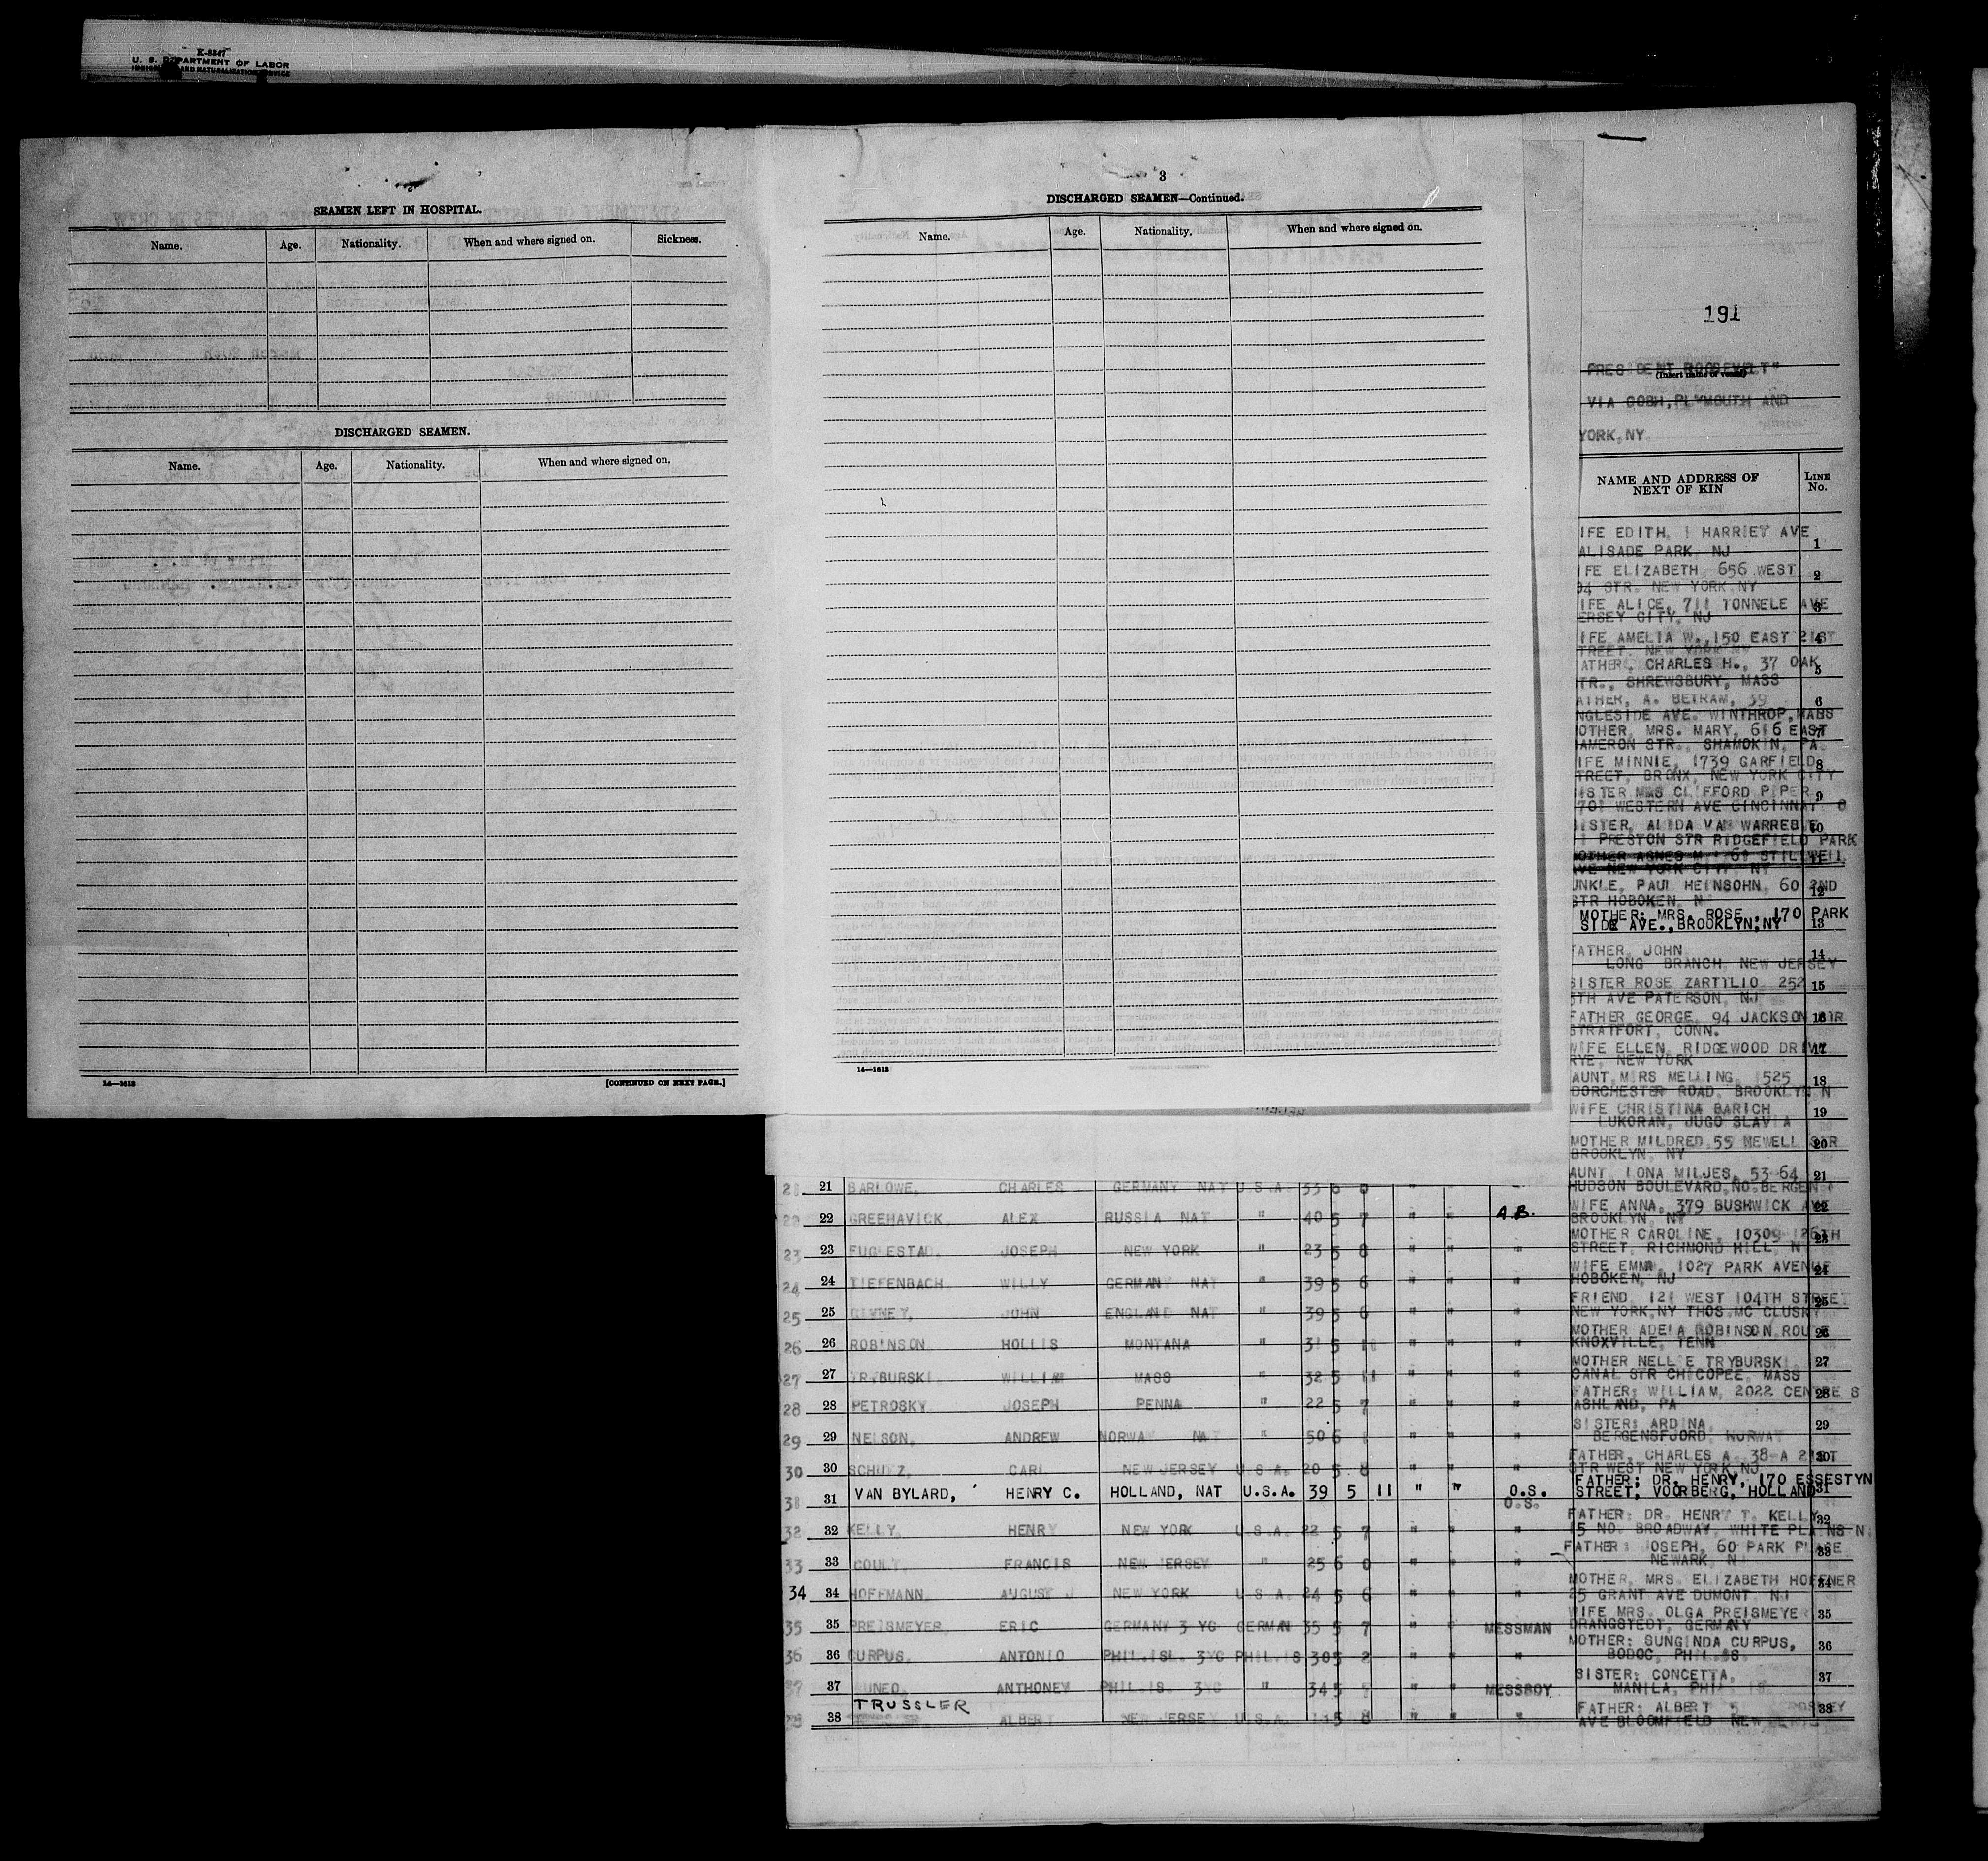 K-8347
U. S. DEPARTMENT OF LABOR
IMMIGRATION AND NATURALIZATION SERVICE
SEAMEN LEFT IN HOSPITAL.
Name. Age. Nationality. When and where signed on. Sickness.
DISCHARGED SEAMEN.
Name. Age. Nationality. When and where signed on.
14—1613 [CONTINUED ON NEXT PAGE.]
3
DISCHARGED SEAMEN—Continued.
Name. Age. Nationality. When and where signed on.
14—1613
191
PRESIDENT ROOSEVELT"
(Insert name of vessel)
VIA COBH, PLYMOUTH AND
YORK, NY.
NAME AND ADDRESS OF NEXT OF KIN LINE No.
IFE EDITH, 1 HARRIET AVE 1
ALISADE PARK NJ
IFE ELIZABETH 656 WEST 2
04 STR. NEW YORK NY
IFE ALICE, 711 TONNELE AVE 3
ERSEY CITY, NJ
IFE AMELIA W., 150 EAST 21ST 4
TREET, NEW YORK NY
ATHER, CHARLES H., 37 OAK 5
TR., SHREWSBURY, MASS
ATHER, A. BETRAM, 39 6
NGLESIDE AVE. WINTHROP, MASS
OTHER, MRS. MARY, 616 EAST 7
CAMERON STR., SHAMOKIN, PA.
IFE MINNIE, 1739 GARFIELD 8
TREET, BRONX, NEW YORK CITY
SISTER MRS CLIFFORD PIPER 9
701 WESTERN AVE CINCINNATI O
SISTER, ALIDA VAN WARREBJE 10
PRESTON STR RIDGEFIELD PARK
MOTHER AGNES M STILLWELL 11
AVE NEW YORK CITY, NY
UNKLE, PAUL HEINSOHN, 60 2ND 12
STR HOBOKEN, N
MOTHER: MRS. ROSE, 170 PARK
SIDE AVE., BROOKLYN, NY 13
FATHER, JOHN 14
LONG BRANCH, NEW JERSEY
SISTER ROSE ZARTYLIO 252 15
5TH AVE PATERSON, NJ
FATHER GEORGE, 94 JACKSON 16
STRATFORT, CONN.
WIFE ELLEN, RIDGEWOOD DRIVE 17
RYE, NEW YORK
AUNT MRS MELLING, 1525 18
DORCHESTER ROAD, BROOKLYN N
WIFE CHRISTINA BARICH 19
LUKORAN, JUGO SLAVIA
MOTHER MILDRED 55 NEWELL STR 20
BROOKLYN, NY
AUNT, LONA MILJES, 53 64 21
HUDSON BOULEVARD, NO. BERGEN
21 BARLOWE, CHARLES GERMANY NAT U.S.A. 6 0 " "
22 22 GREEHAVICK ALEX RUSSIA NAT " 40 5 7 " " A.B. WIFE ANNA, 379 BUSHWICK AVE 22
BROOKLYN, NY
23 23 FUGLESTAD, JOSEPH NEW YORK " 23 5 8 " " " MOTHER CAROLINE, 10309 126TH 23
STREET, RICHMOND HILL, NY
24 24 TIEFENBACH WILLY GERMANY NAT " 39 5 6 " " WIFE EMMA, 1027 PARK AVENUE 24
HOBOKEN, NJ
25 25 JOHN ENGLAND NAT " 39 5 6 " " " FRIEND, 121 WEST 104TH STREET 25
NEW YORK, NY THOS. MC CLUSKY
26 26 ROBINSON HOLLIS MONTANA " 31 5 " " " MOTHER ADELA ROBINSON ROUTE 26
KNOXVILLE, TENN
27 27 TRYBURSKI WILLIAM MASS " 32 5 11 " " " MOTHER NELLIE TRYBURSKI 27
CANAL STR CHICOPEE, MASS
28 28 PETROSKY JOSEPH PENNA " 22 5 7 " " " FATHER: WILLIAM, 2022 CENTRE S 28
ASHLAND, PA
29 29 NELSON, ANDREW NORWAY NAT " 50 6 " " " SISTER: ARDINA, 29
BERGENSFJORD, NORWAY
30 30 SCHULZ, CARL NEW JERSEY U.S.A. 20 5 8 " " " FATHER, CHARLES A. 38-A 21ST 30
STR WEST NEW YORK, NJ
31 31 VAN BYLARD, HENRY C. HOLLAND, NAT U.S.A. 39 5 11 " " O.S. FATHER: DR. HENRY, 170 ESSESTYN
STREET, VOORBERG, HOLLAND 31
O.S.
32 32 KELLY, HENRY NEW YORK U.S.A. 22 5 7 " " " FATHER: DR. HENRY T. KELLY, 32
15 NO. BROADWAY, WHITE PLAINS N
33 33 COULT FRANCIS NEW JERSEY " 25 6 0 " " " FATHER: JOSEPH, 60 PARK PLACE 33
NEWARK, N
34 34 HOFFMANN AUGUST J NEW YORK U S A. 24 5 6 " " " MOTHER, MRS. ELIZABETH HOFFNER 34
25 GRANT AVE DUMONT, NJ
35 35 PREISMEYER, ERIC GERMANY 3 YG GERMAN 35 5 7 " " MESSMAN WIFE MRS. OLGA PREISMEYER 35
DRANGSTEDT, GERMANY
36 36 CURPUS, ANTONIO PHIL.ISL. 3YG PHIL.IS 30 5 2 " " " MOTHER: SUNGINDA CURPUS, 36
BODOC, PHIL. IS.
37 37 ANTHONEY PHIL.IS. 3YG " 34 5 " " MESSBOY SISTER: CONCETTA, 37
MANILA, PHIL
TRUSSLER
38 38 ALBERT NEW JERSEY U.S.A. 5 8 " " " FATHER: ALBERT 38
AVE BLOOMFIELD NEW JERSEY